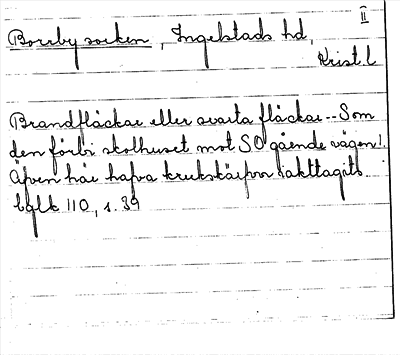 II
Borrby socken, Ingelstads hd,
Krist. l
Brandfläckar eller svarta fläckar -- Som
den förbi skolhuset mot SO gående vägen!
Äfven här hafva krukskärfvor iakttagits
bglk 110, s. 39